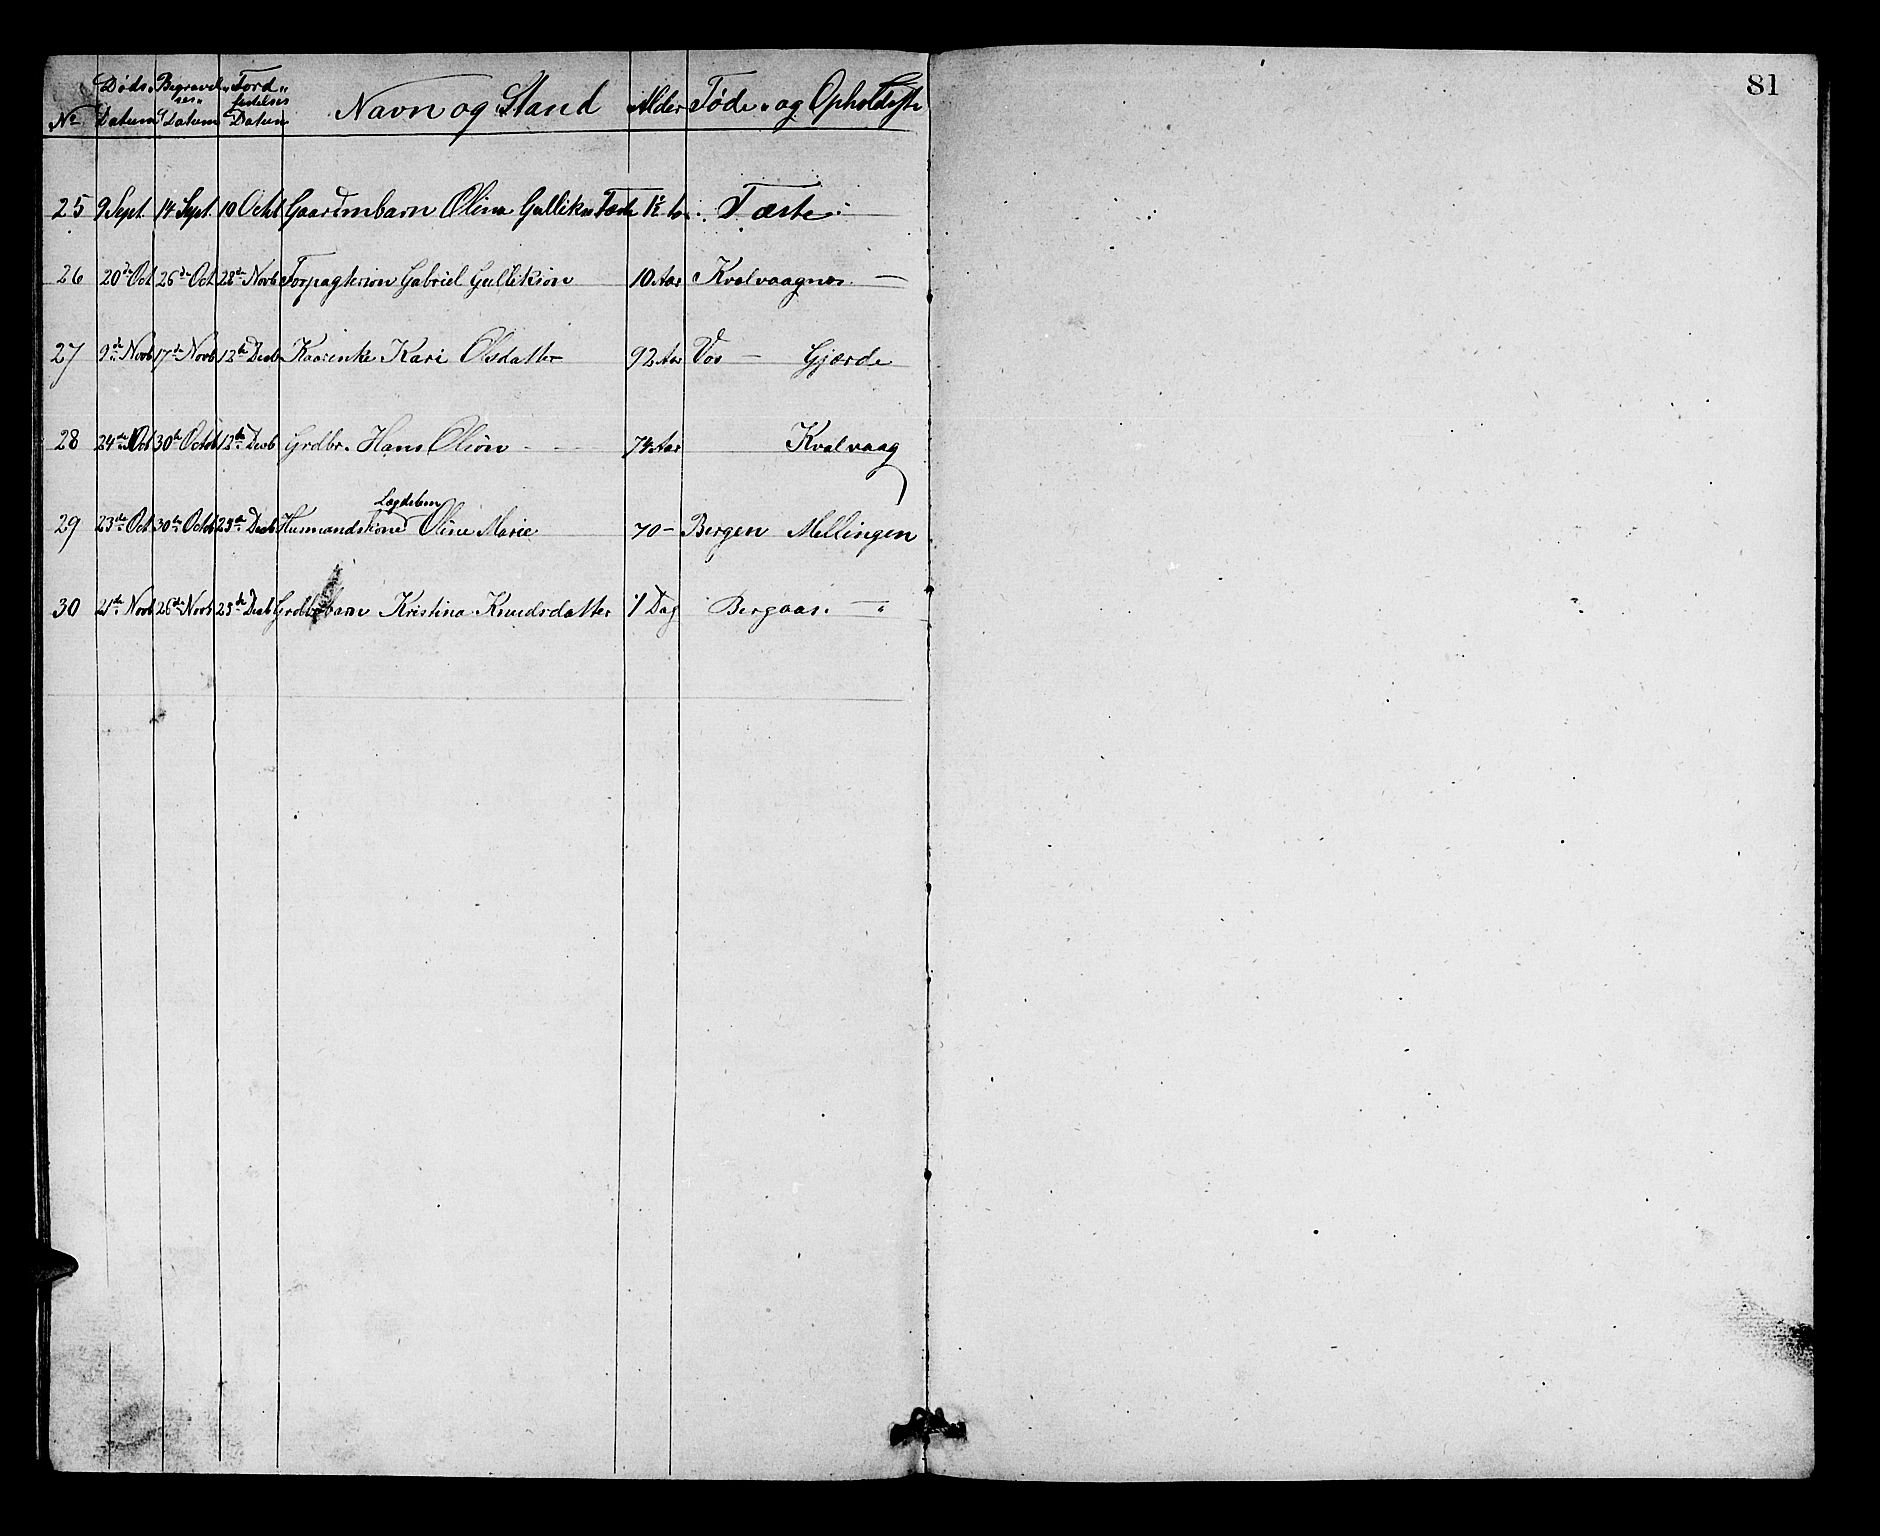 81
No Døds Datum Begravelses Datum Jordfestelses Datum Navn og Stand Alder Føde- og Opholdsste
25 9 Sept. 14 Sept. 10 Octb Gaardmbarn Olina Galliks Tæste Tæste
26 20de Oct 26de Oct 28de Novb Forpagterson Gabriel Gulliksøn 10 Aar Kvalvaagnes
27 9de Novb 17de Novb 12de Decb Kaarenke Kari Olsdatter 92 Aar Vos — Gjærde
28 24de Oct 30de Octob 12de Decb Grdbr. Hans Olsøn 74 Aar Kvalvaag
Lægdelem
29 23de Oct 30de Octob 29de Decb Husmandskone Oline Marie 70 — Bergen Mellingen
30 21de Novb 26de Novb 29de Decb Grdbrbarn Kristina Knudsdatter 1 Dag Bergaas. — "